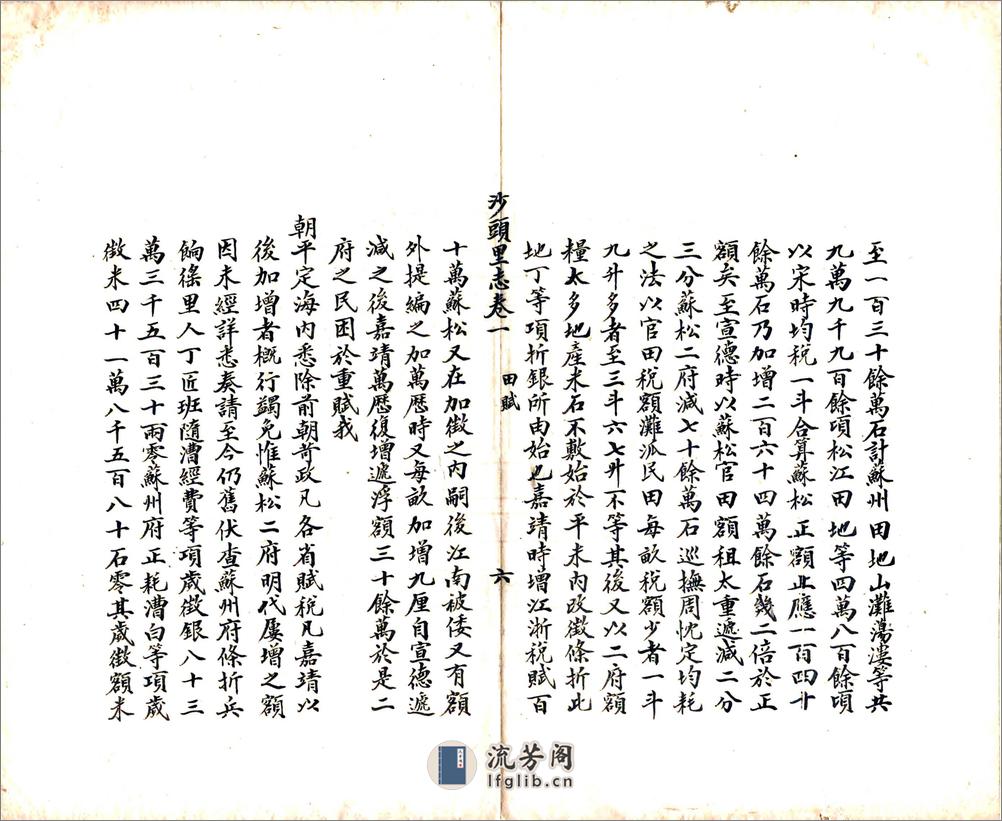 至一百三十餘萬石計蘇州田地山灘蕩漊等共
九萬九千九百餘頃松江田地等四萬八百餘頃
以宋時均稅一斗合算蘇松正額止應一百四十
餘萬石乃加增二百六十四萬餘石幾二倍於正
額矣至宣德時以蘇松官田額租太重遞減二分
三分蘇松二府減七十餘萬石巡撫周忱定均耗
之法以官田稅額灘派民田每畝稅額少者一斗
九升多者至三斗六七升不等其後又以二府額
糧太多地產米石不敷始於平米內改徵條折此
地丁等項折銀所由始也嘉靖時增江浙稅賦百
沙頭里志卷一
田賦
六
十萬蘇松又在加徵之內嗣後江南被倭又有額
外提編之加萬歷時又每畝加增九厘自宣德遞
減之後嘉靖萬歷復增遞浮額三十餘萬於是二
府之民困於重賦我
朝平定海內悉除前朝苛政凡各省賦稅凡嘉靖以
後加增者概行蠲免惟蘇松二府明代屢增之額
因未經詳悉奏請至今仍舊伏查蘇州府條折兵
餉徭里人丁匠班隨漕經費等項歲徵銀八十三
萬三千五百三十兩零蘇州府正耗漕白等項歲
徵米四十一萬八千五百八十石零其歲徵額米
流芳阁
lfglib.cn